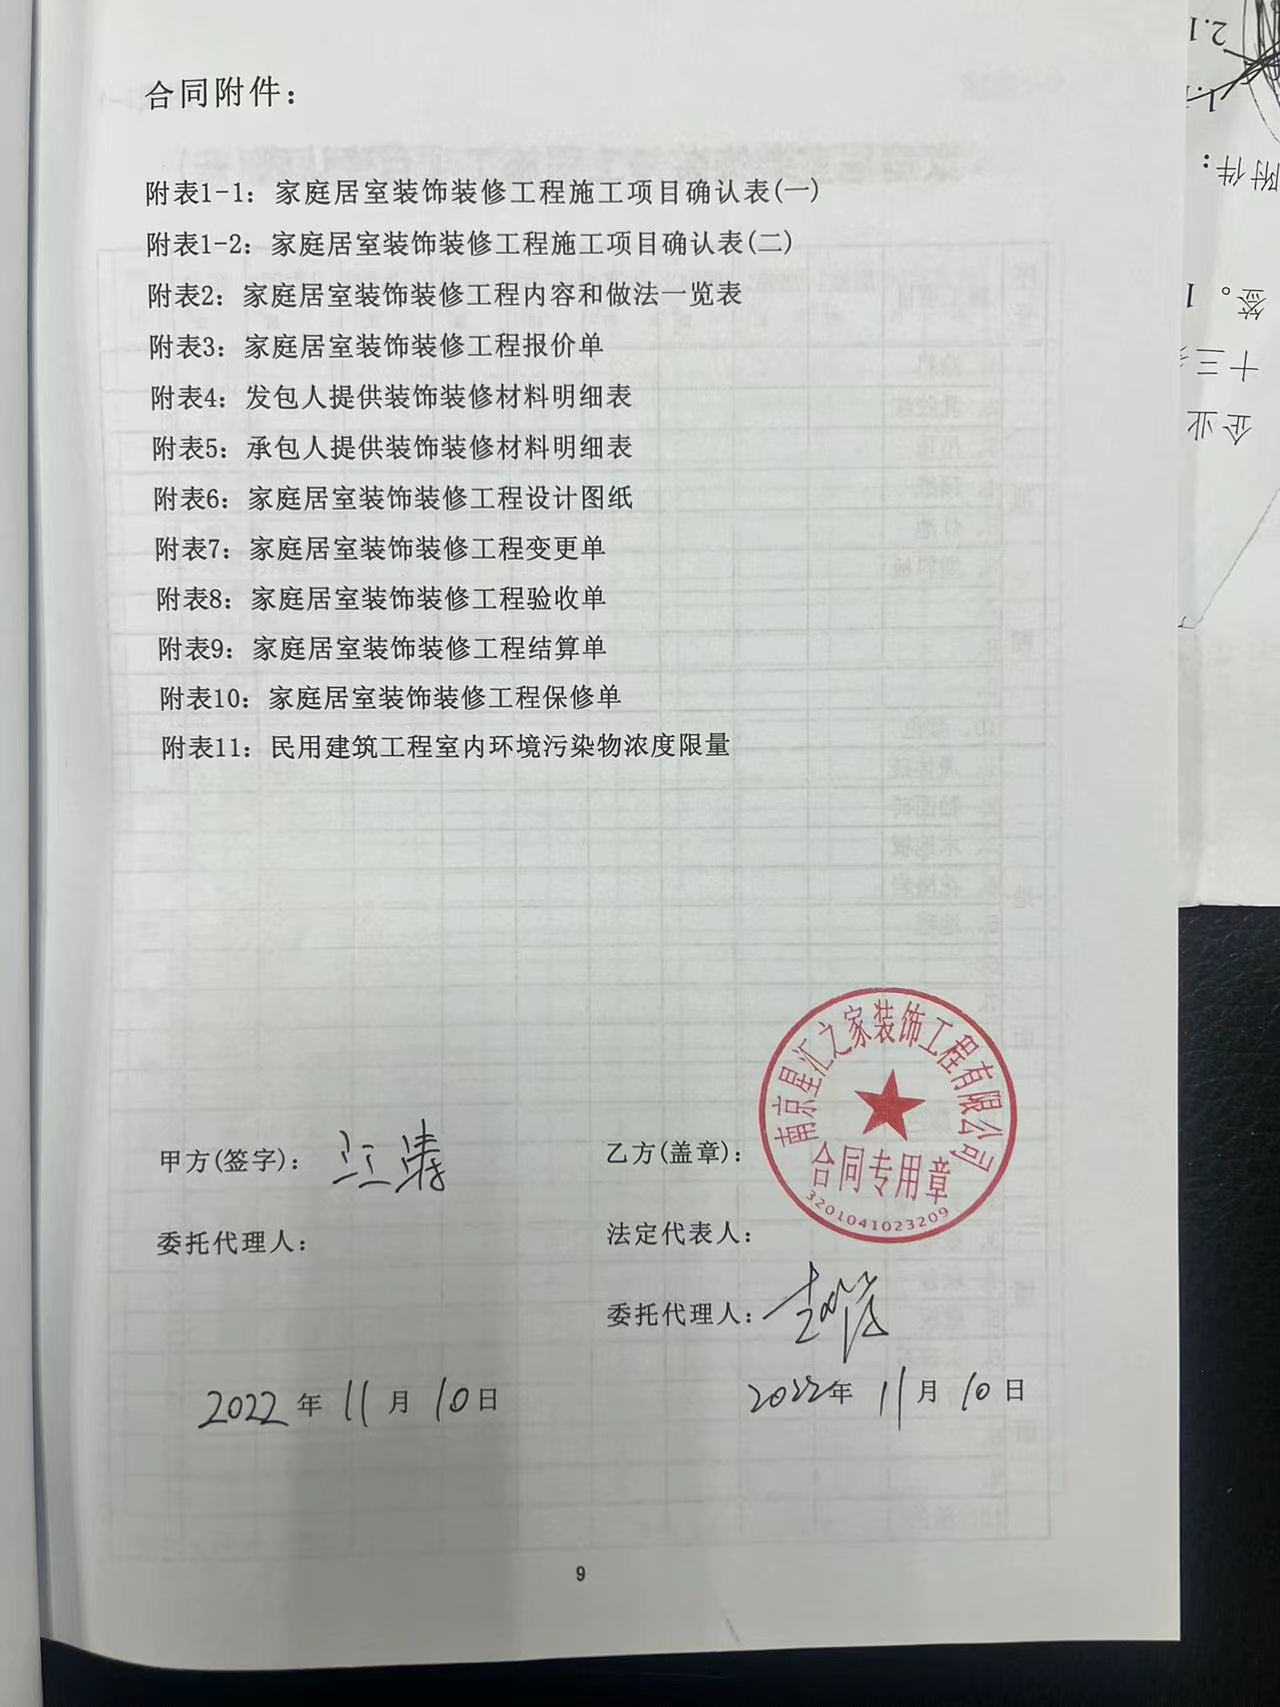 合同附件：
附表1-1：家庭居室装饰装修工程施工项目确认表(一)
附表1-2：家庭居室装饰装修工程施工项目确认表(二)
附表2：家庭居室装饰装修工程内容和做法一览表
附表3：家庭居室装饰装修工程报价单
附表4：发包人提供装饰装修材料明细表
附表5：承包人提供装饰装修材料明细表
附表6：家庭居室装饰装修工程设计图纸
附表7：家庭居室装饰装修工程变更单
附表8：家庭居室装饰装修工程验收单
附表9：家庭居室装饰装修工程结算单
附表10：家庭居室装饰装修工程保修单
附表11：民用建筑工程室内环境污染物浓度限量
南京星汇之家装饰工程有限公司
合同专用章
3201041023209
甲方(签字)：江涛
乙方(盖章)：
委托代理人：
法定代表人：
委托代理人：
2022年11月10日
2022年11月10日
9
企业
十三
签。1
附件：
1.
2.1